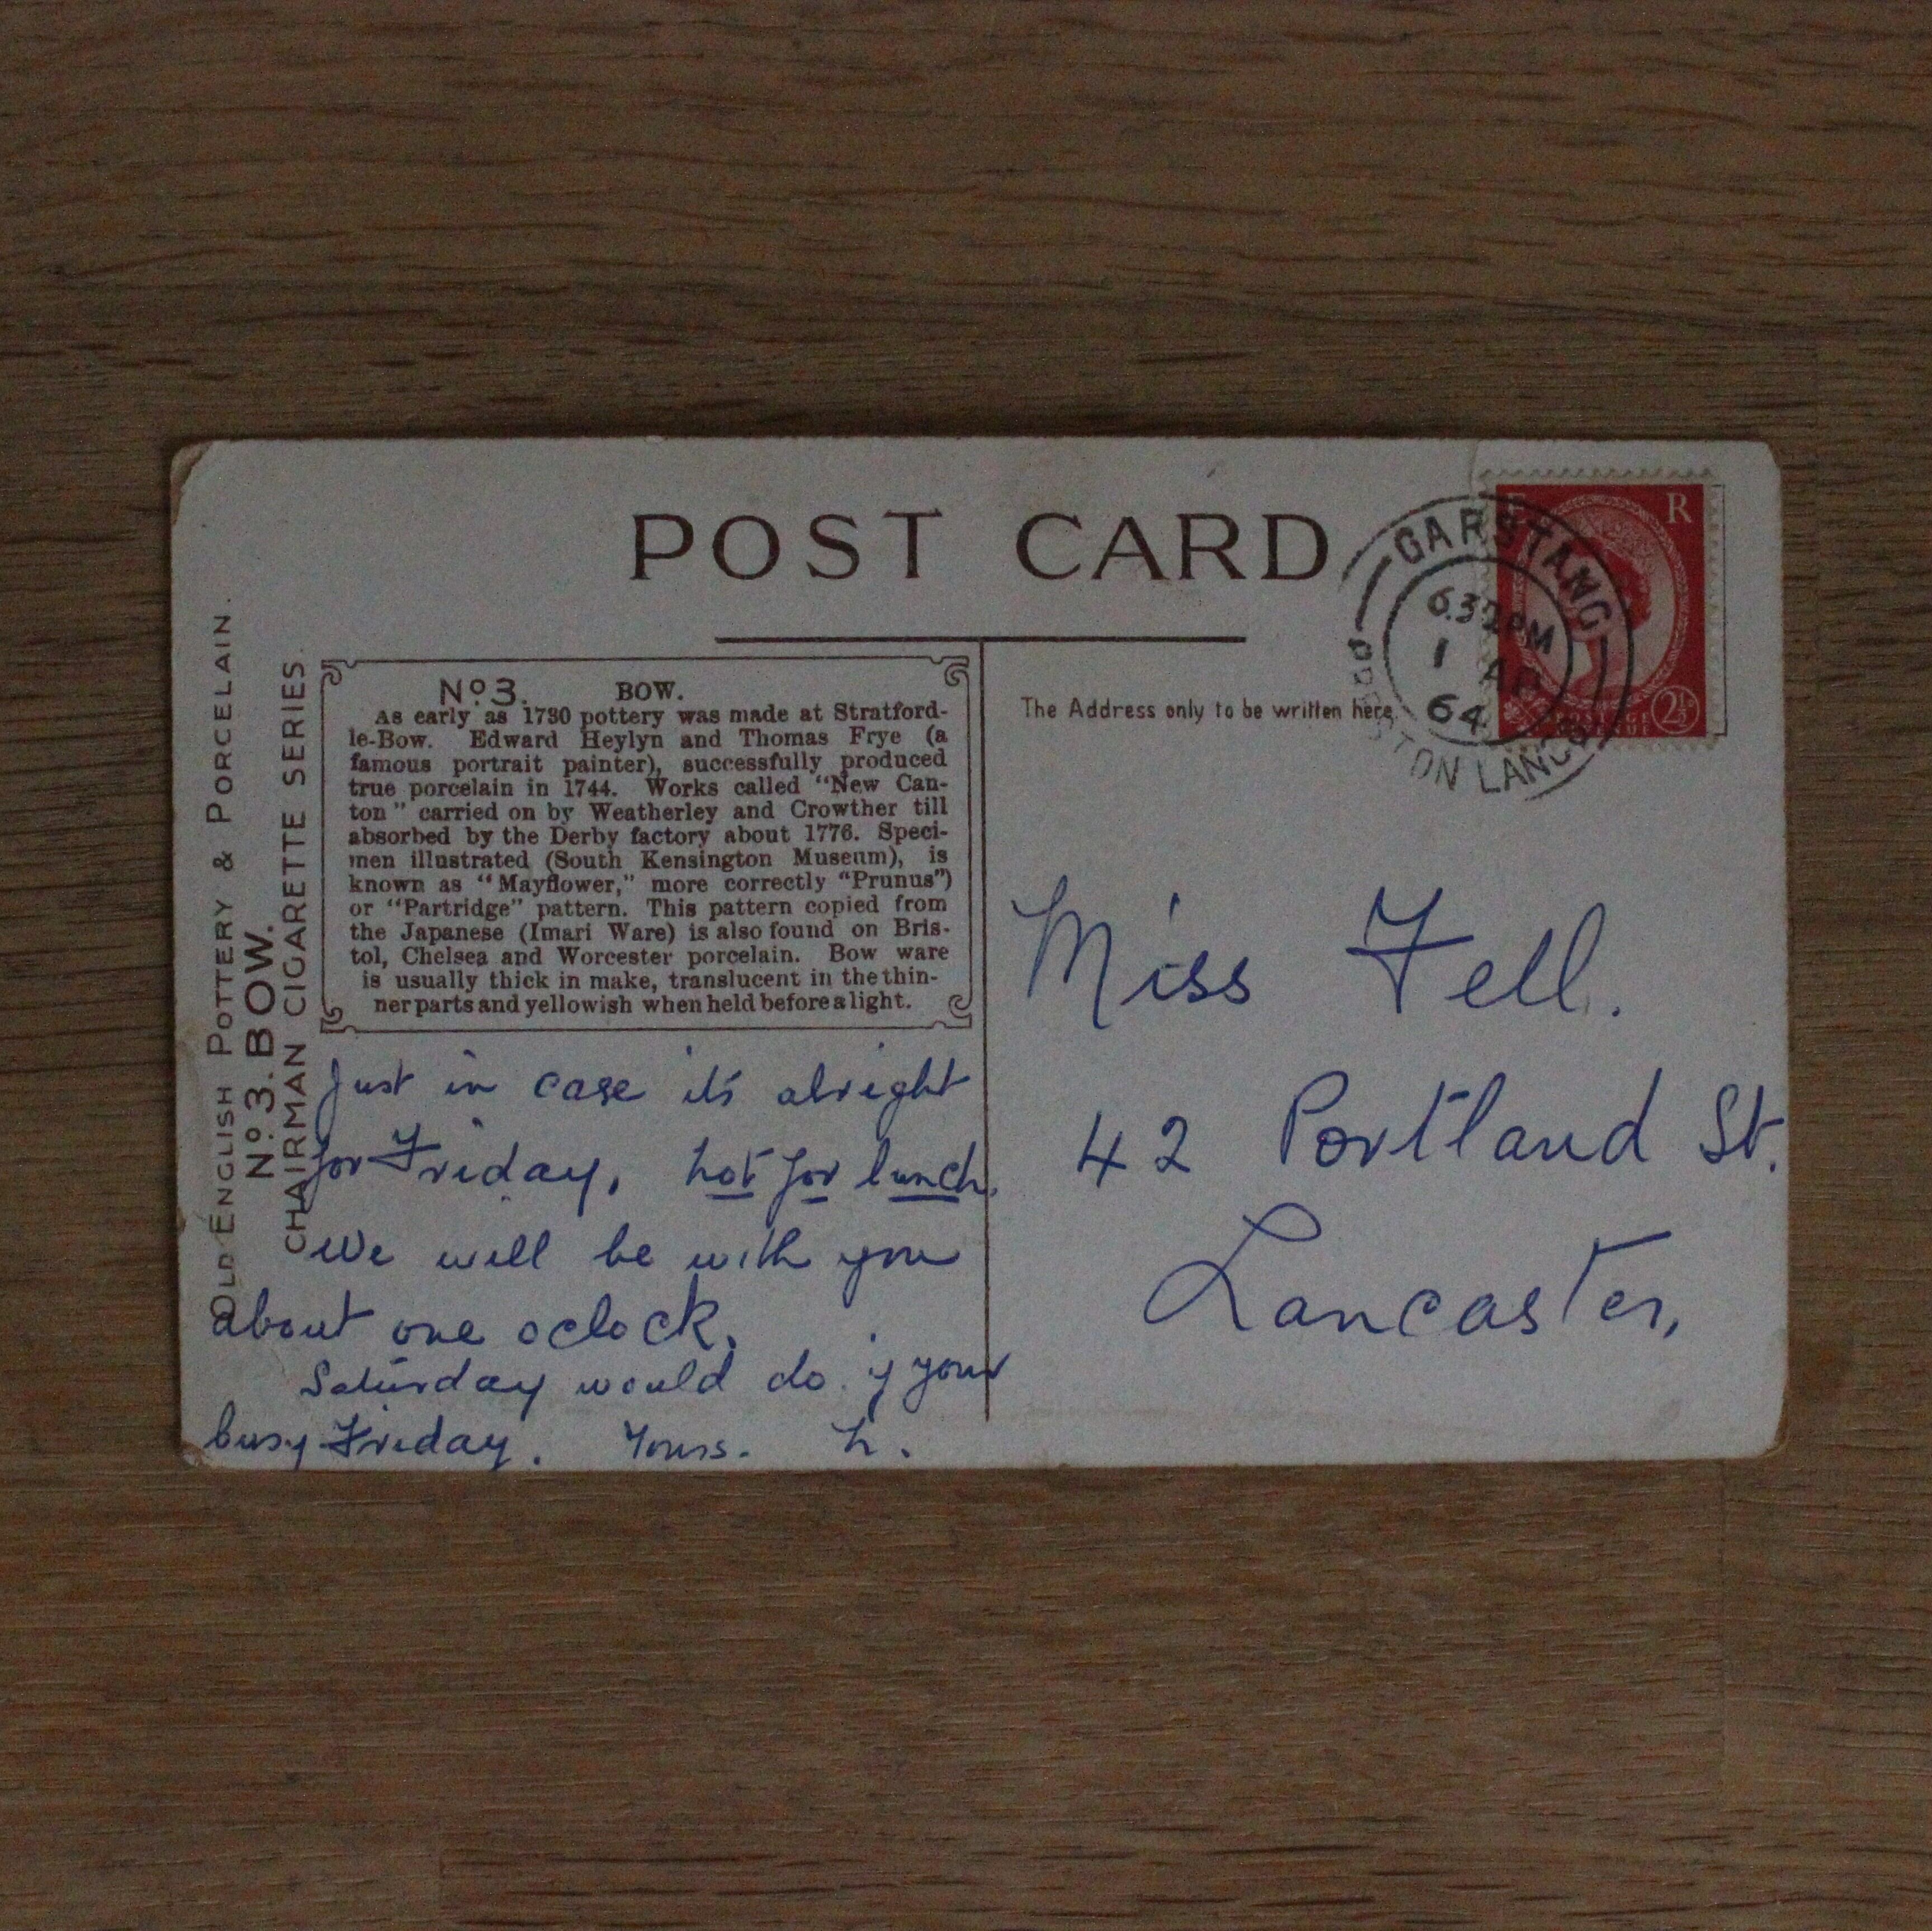 POST CARD
OLD ENGLISH POTTERY & PORCELAIN.
No. 3. BOW.
CHAIRMAN CIGARETTE SERIES.
No. 3. BOW.
As early as 1730 pottery was made at Stratford-
le-Bow. Edward Heylyn and Thomas Frye (a
famous portrait painter), successfully produced
true porcelain in 1744. Works called "New Can-
ton" carried on by Weatherley and Crowther till
absorbed by the Derby factory about 1776. Speci-
men illustrated (South Kensington Museum), is
known as "Mayflower," more correctly "Prunus")
or "Partridge" pattern. This pattern copied from
the Japanese (Imari Ware) is also found on Bris-
tol, Chelsea and Worcester porcelain. Bow ware
is usually thick in make, translucent in the thin-
ner parts and yellowish when held before a light.
Just in case it's alright
for Friday, not for lunch.
We will be with you
about one oclock.
Saturday would do if your
busy Friday. Yours. h.
The Address only to be written here.
Miss Fell.
42 Portland St.
Lancaster,
GARSTANG
6.30 PM
1 AP
64
PRESTON LANCS
E R
2½